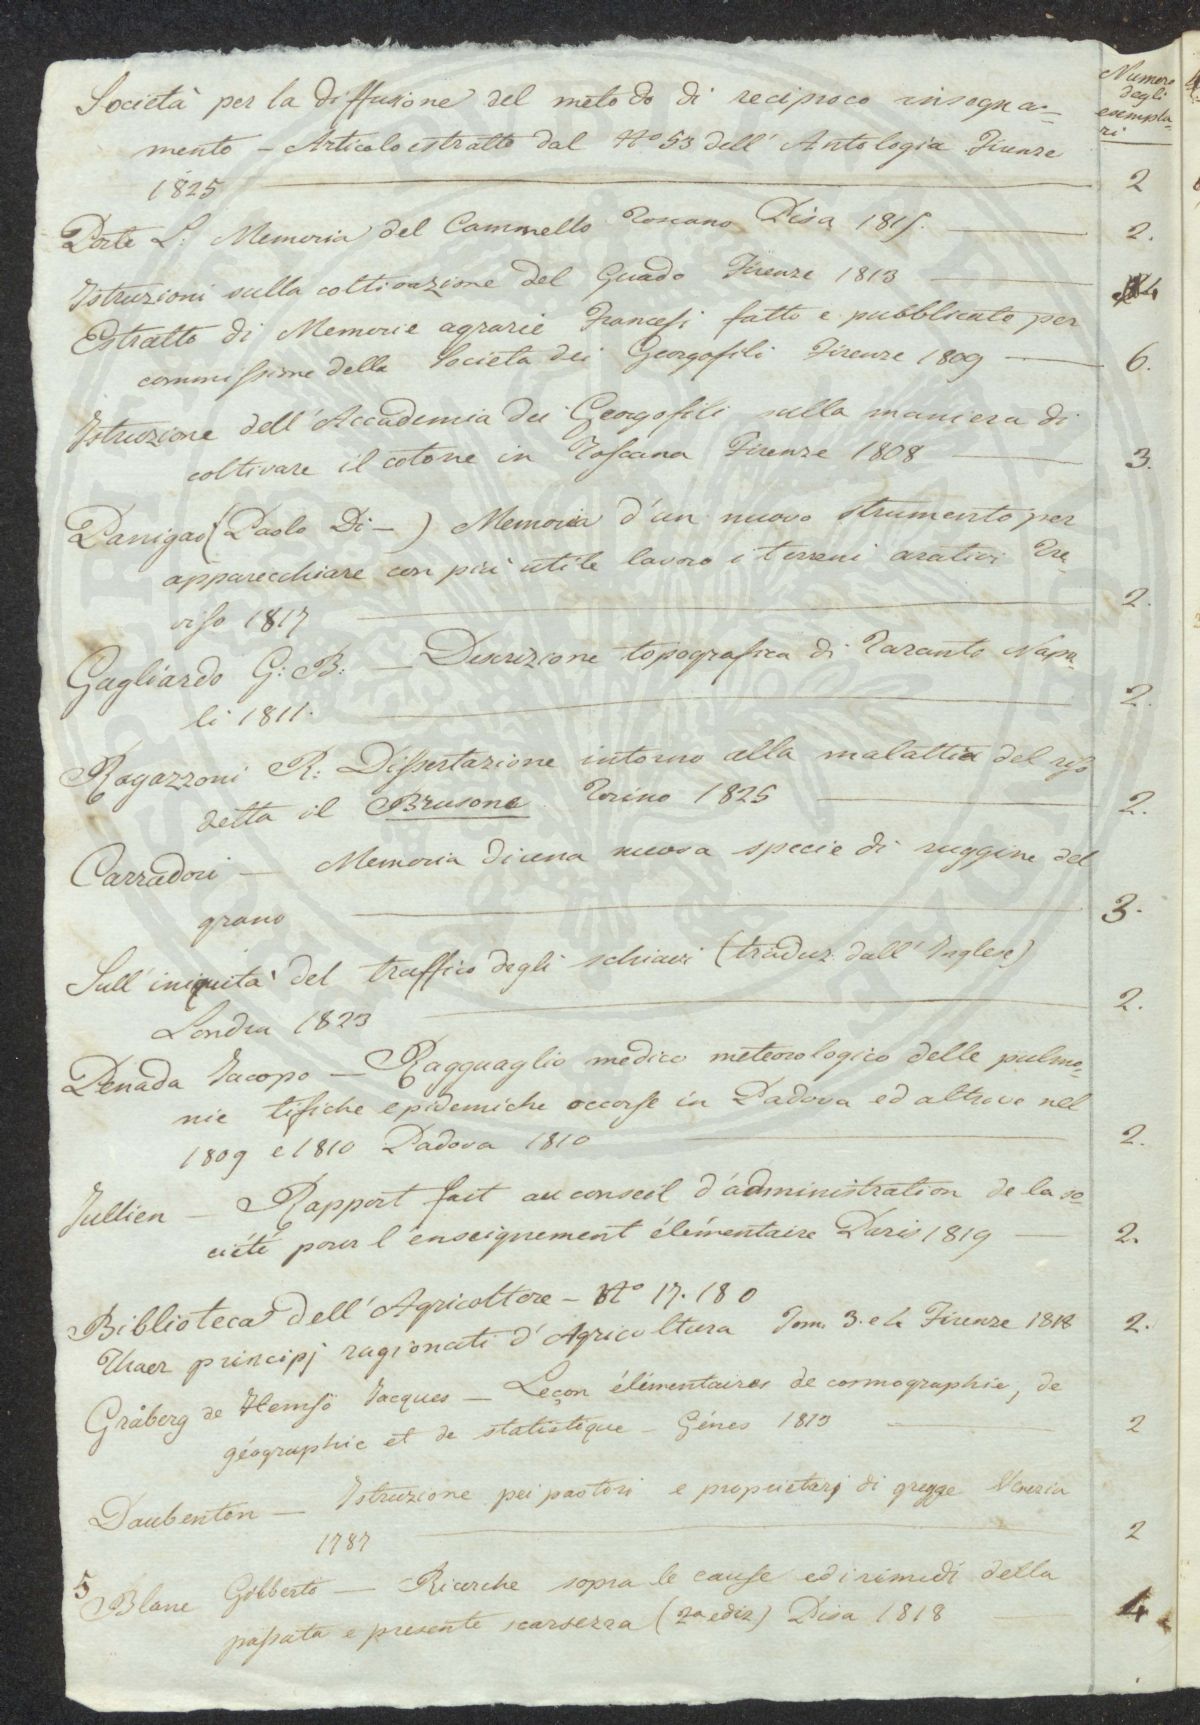 Numero
degli
esempla-
ri
Società per la diffusione del metodo di reciproco insegna-
mento – Articolo estratto dal Nº 53 dell' Antologia Firenze
1825 2
Porte L: Memoria del Cammello Toscano Pisa 1815. 2.
Istruzioni sulla coltivazione del Guado Firenze 1813 4
Estratto di Memorie agrarie Francesi fatto e pubblicato per
commissione della Società dei Georgofili Firenze 1809 6.
Istruzione dell'Accademia dei Georgofili sulla maniera di
coltivare il cotone in Toscana Firenze 1808 3.
Panigao (Paolo Di –) Memoria d'un nuovo strumento per
apparecchiare con più utile lavoro i terreni arativi Tre-
viso 1817 2.
Gagliardo G: B: – Descrizione topografica di Taranto Napo-
li 1811. 2.
Ragazzoni R: Dissertazione intorno alla malattia del riso
detta il Brusone Torino 1825 2.
Carradori – Memoria di una nuova specie di ruggine del
grano 3.
Sull'iniquità del traffico degli schiavi (traduz. dall'Inglese)
Londra 1823 2.
Penada Jacopo – Ragguaglio medico meteorologico delle pulmo-
nie tifiche epidemiche occorse in Padova ed altrove nel
1809 e 1810 Padova 1810 2.
Jullien – Rapport fait au conseil d'administration de la so-
ciété pour l'enseignement élémentaire Paris 1819 2.
Biblioteca dell'Agricoltore – Nº 17. 18 o
Thaer principj ragionati d'Agricoltura Tom. 3. e 4 Firenze 1818 2.
Gråberg de Hemsö Jacques – Leçon élémentaires de cosmographie, de
géographie et de statistique – Génes 1813 2
Daubenton – Istruzione pei pastori e proprietarj di gregge Venezia
1787 2
5 Blane Gilberto – Ricerche sopra le cause ed i rimedi della
passata e presente scarsezza (2a ediz) Pisa 1818 4